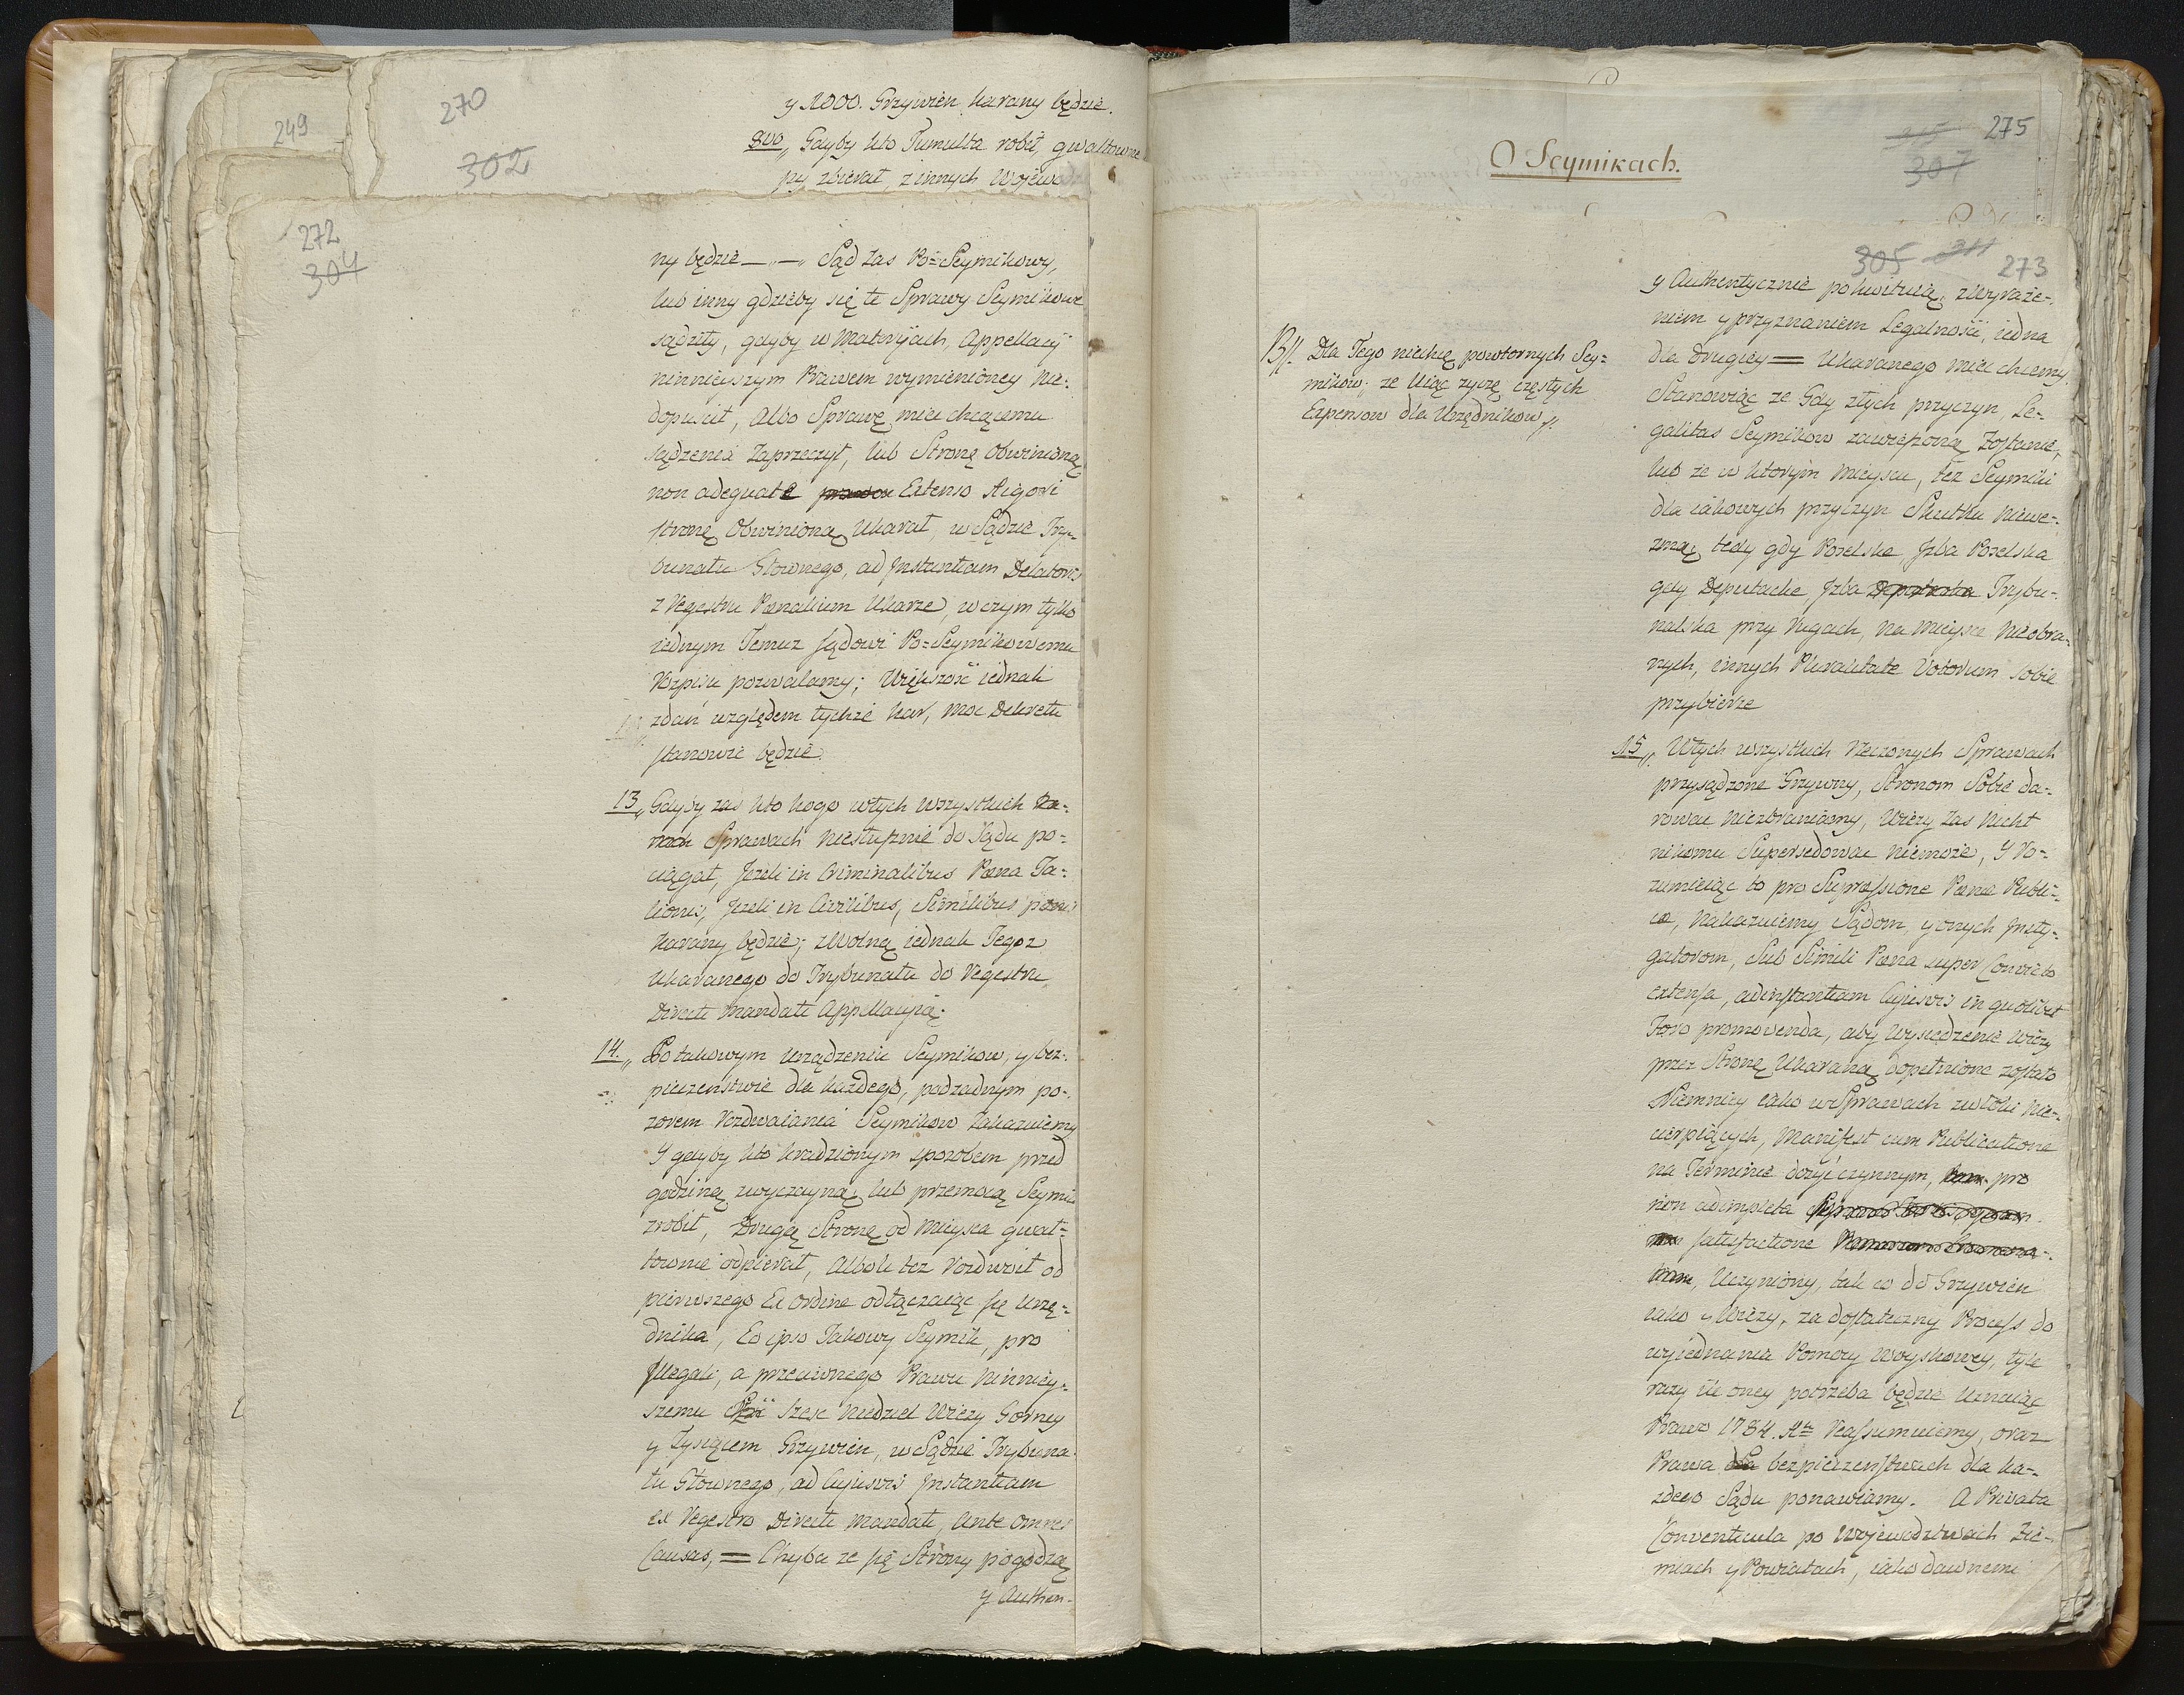 249
270
302
y 1000. Grzywien karany będzie.
8vo „ Gdyby kto Tumulta robił, gwałtowne
py zbierał, z innych Wojewo
272
304
ny będzie —„—„ Sąd zas Po=Seymikowy,
lub inny gdzieby się te Sprawy Seymikowe
sądziły, gdyby w Materyiach, Appellacÿ
ninnieyszym Prawem wymienioney nie-
dopuscił, Albo Sprawę miec chcącemu
sądzenia Zaprzeczył, lub Stronę Obwinioną
non adequate Extenso Rigori
stronę Obwinioną Ukarał, w Sądzie Try-
bunału Głownego, ad Instantiam Delatoris
z Regestru Pœnalium Ukarze, w czym tylko
iednym Temuz Sądowi Po=Seymikowemu
Rozpisu pozwalamy; Większość iednak
zdań względem tychże kar, moc Dekretu
stanowic będzie.
13 „ Gdyby zas kto kogo wtych wszystkich ka-
rach Sprawach niesłusznie do Sądu po-
ciągał, Jezeli in Criminalibus Pœna Ta-
lionis, Jezeli in Civilibus, Similibus pœnis
karany będzie; zwolną iednak Tegoz
Ukaranego do Trybunału do Regestru
Directi Mandati Appellacyią.
14. „ Po takowym urządzeniu Seymikow, y bez-
pieczenstwie dla kazdego, podzadnym po-
zorem Rozdwaiania Seymikow Zakazuiemy
Y gdyby kto kradzionym sposobem przed
godziną zwyczayną, lub przemocą Seymik
zrobił, Drugą Stronę od Mieysca gwał-
townie odpierał, Albo li tez Rozdwoił od
pierwszego Ex Ordine odłączaiąc się Urzę-
dnika, Eo ipso Takowy Seymik, pro
Illegali, a przeciwnego Prawu ninniey-
szemu Szesc Niedziel Wiezy Gorney
y Tysiącem Grzywien, w Sądzie Trybuna
łu Głownego, ad Cujusvis Instantiam
ex Regestro Directi Mandati, Ante Omnes
Causas, = Chyba ze się Strony pogodzą
y Authen-
O Seymikach.
275
307
305
311
273
13//. Dla Tego niechcę powtornych Sey=
mikow; ze Uiąc zyczę częstych
Expensow dla Urzędnikow //.
y Authentycznie pokwituią, zwyraże-
niem y przyznaniem Legalności, iedna
dla drugiey = Ukaranego miec chcemy,
Stanowiąc ze Gdy złych przyczyn, Le-
galitas Seymikow zawieszoną Zostanie,
lub ze w ktorym mieyscu, tez Seymiki
dla iakowych przyczyn Skutku niewe-
zmą, tedy gdy Poselskie, Izba Poselska
gdy Deputackie, Izba Deputacka Trybu-
nalska przy Rugach, na mieysce nieobra-
nych, innych Pluralitate Votorum sobie
przybierze
15 „ Wtych wszystkich Rzeczonych Sprawach
przysądzone Grzywny, Stronom Sobie da-
rowac niezbraniamy, Wiezy zas nikt
nikomu Supersedowac niemoże, Y Ro-
zumieiąc to pro Supressione Pœnæ Publi-
cæ, nakazuiemy Sądom, y onych Insty-
gatorom, Sub Simili Pœna super Convicto
extensa, ad instantiam Cujusvis in quolibet
Foro promovenda, aby Wysiedzenie Wiezy
przez Stronę Ukaraną dopełnione zostało
Niemniey iako w Sprawach zwłoki nie-
cierpiących, Manifest cum Publicatione
na Terminie dosyć czynnym, pro
non adimpleta
satisfactione
Uczyniony, tak co do Grzywien
iako y Wiezy, za dostateczny Process do
wyiednania Pomocy Woyskowey, tyle
razy ile oney potrzeba będzie Uznaiąc
Prawo 1784. Ru Reassumuiemy, oraz
Prawa bezpieczenstwach dla ka-
zdego Sądu ponawiamy. A Privata
Conventicula po Wojewodztwach Zie-
miach y Powiatach, iako dawnemi